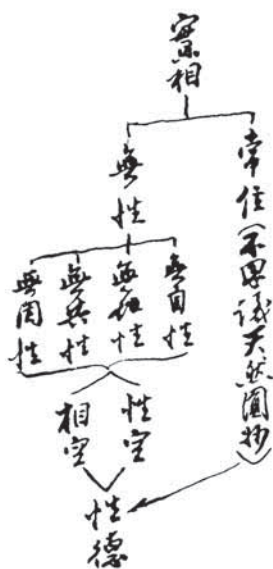 實相
常住(不思議天然圓妙)
無性
無自性
無他性
無共性
無因性
性空
相空
性德